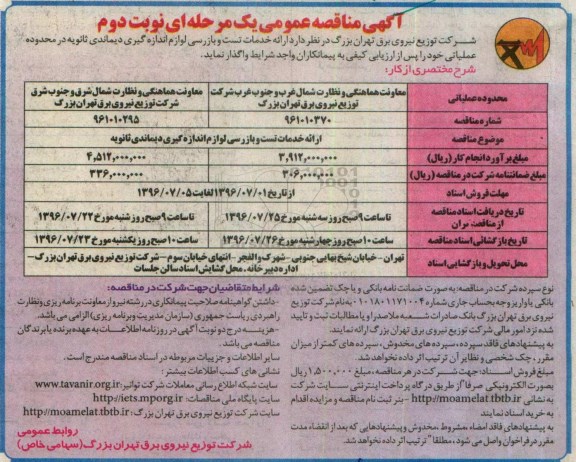 آگهی مناقصه عمومی یک مرحله ای نوبت دوم
شرکت توزیع نیروی برق تهران بزرگ در نظر دارد ارائه خدمات تست و بازرسی لوازم اندازه گیری دیماندی ثانویه در محدوده
عملیاتی خود را پس از ارزیابی کیفی به پیمانکاران واجد شرایط واگذار نماید.
شرح مختصری از کار:
محدوده عملیاتی | معاونت هماهنگی و نظارت شمال غرب و جنوب غرب شرکت توزیع نیروی برق تهران بزرگ | معاونت هماهنگی و نظارت شمال شرق و جنوب شرق شرکت توزیع نیروی برق تهران بزرگ
شماره مناقصه | ۹۶۱۰۱۰۳۷۰ | ۹۶۱۰۱۰۲۹۵
موضوع مناقصه | ارائه خدمات تست و بازرسی لوازم اندازه گیری دیماندی ثانویه
مبلغ برآورد انجام کار (ریال) | ۳,۹۱۲,۰۰۰,۰۰۰ | ۴,۵۱۲,۰۰۰,۰۰۰
مبلغ ضمانتنامه شرکت در مناقصه (ریال) | ۳۰۶,۰۰۰,۰۰۰ | ۳۳۶,۰۰۰,۰۰۰
مهلت فروش اسناد | از تاریخ ۱۳۹۶/۰۷/۰۱ لغایت ۱۳۹۶/۰۷/۰۵
تاریخ دریافت اسناد مناقصه از مناقصه گران | تا ساعت ۹ صبح روز سه شنبه مورخ ۱۳۹۶/۰۷/۲۵ | تا ساعت ۹ صبح روز شنبه مورخ ۱۳۹۶/۰۷/۲۲
تاریخ بازگشائی اسناد مناقصه | ساعت ۱۰ صبح روز چهارشنبه مورخ ۱۳۹۶/۰۷/۲۶ | ساعت ۱۰ صبح روز یکشنبه مورخ ۱۳۹۶/۰۷/۲۳
محل تحویل و بازگشایی اسناد | تهران - خیابان شیخ بهایی جنوبی - شهرک والفجر - انتهای خیابان سوم - شرکت توزیع نیروی برق تهران بزرگ - اداره دبیرخانه. محل گشایش اسناد سالن جلسات
نوع سپرده شرکت در مناقصه: به صورت ضمانت نامه بانکی و یا چک تضمین شده
بانکی یا واریز وجه بحساب جاری شماره ۰۱۰۱۸۰۱۱۷۱۰۰۴ به نام شرکت توزیع
نیروی برق تهران بزرگ بانک صادرات شعبه ملاصدرا و یا مطالبات ثبت و تایید
شده نزد امور مالی شرکت توزیع نیروی برق تهران بزرگ ارائه نمایند.
به پیشنهادهای فاقد سپرده، سپرده های مخدوش، سپرده های کمتر از میزان
مقرر، چک شخصی و نظایر آن ترتیب اثر داده نخواهد شد.
مبلغ فروش اسناد: جهت شرکت در هر مناقصه، مبلغ ۱,۵۰۰,۰۰۰ ریال
بصورت الکترونیکی صرفاً از طریق درگاه پرداخت اینترنتی سایت شرکت
به نشانی http://moamelat.tbtb.ir - بنر ثبت نام مناقصه و مزایده اقدام
به خرید اسناد نمایند
به پیشنهادهای فاقد امضاء، مشروط، مخدوش و پیشنهادهایی که بعد از انقضاء مدت
مقرر در فراخوان واصل می شود، مطلقاً ترتیب اثر داده نخواهد شد.
شرایط متقاضیان جهت شرکت در مناقصه:
-داشتن گواهینامه صلاحیت پیمانکاری در رشته نیرو از معاونت برنامه ریزی و نظارت
راهبردی ریاست جمهوری (سازمان مدیریت و برنامه ریزی) الزامی می باشد.
-هزینه درج دو نوبت آگهی در روزنامه اطلاعات به عهده برنده یا برندگان
مناقصه می باشد.
سایر اطلاعات و جزییات مربوطه در اسناد مناقصه مندرج است.
نشانی های کسب اطلاعات بیشتر:
سایت شبکه اطلاع رسانی معاملات شرکت توانیر: www.tavanir.org.ir
سایت پایگاه ملی مناقصات: http://iets.mporg.ir
سایت شرکت توزیع نیروی برق تهران بزرگ: http://moamelat.tbtb.ir
روابط عمومی
شرکت توزیع نیروی برق تهران بزرگ (سهامی خاص)